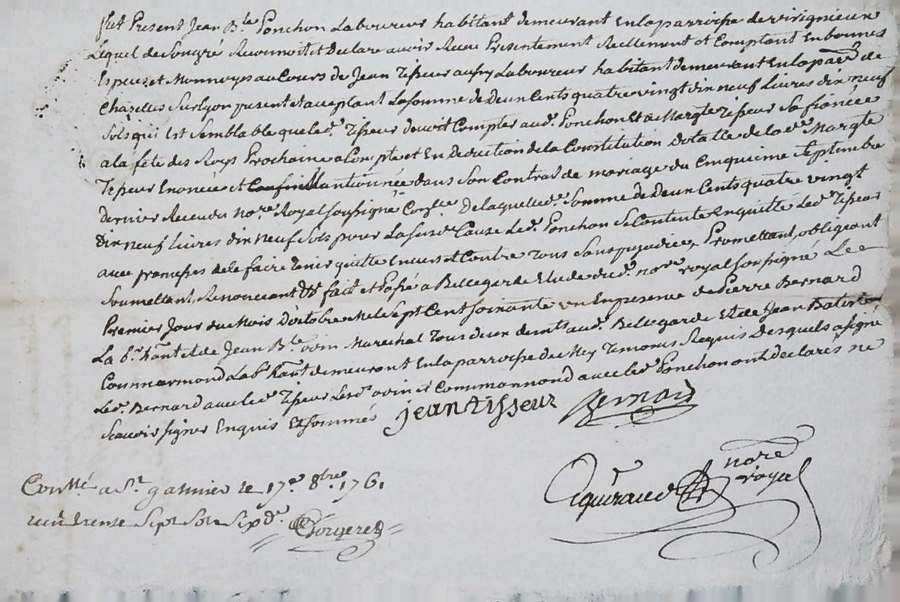 fut Present Jean B.te Ponchon Laboureur habitant demeurant En la parroisse de virignieu
Lequel de Son gré Reconnoit et Declare avoir Receu Presentement Reellement et Comptant En bonnes
Especes et Monnoys au Cours de Jean Tisseur aussy Laboureur habitant demeurant En la par.se de
Chazelles Sur Lyon present et aceptant La Somme de deux Cents quatre vingt dix neuf Livres dix neuf
Sols qui est Semblable que led. Tisseur devoit Compter aud. Ponchon Et de Margte Tisseur Sa fiancée
a la fête des Roys Prochaine a Compte et En Deduction de la Constitution dotalle de la d. Margte
Tisseur Enoncée et dans Son Contrat de mariage du Cinquieme Septembre
dernier Receu du no.re Royal Soussigné De laquelle Somme de deux Cents quatre vingt
dix neuf Livres dix neuf Sols pour La Susd. Cause Led. Ponchon Se Contente En quitte Led. Tisseur
avec promesses de le faire tenir quitte Envers et Contre Tous Sans prejudice Promettant, obligeant
Soumettant, Renonceant &a fait et Passé a Bellegarde Etude dud. no.re royal Soussigné Le
Premier Jour du Mois D'octobre Mil Sept Cent Soixante un En presence de Pierre Bernard
La b.r hant et de Jean B.te ovin Marechal Tous deux demt aud. Bellegarde Et de Jean Batiste
Commarmond Lab.r hant demeurant En la parroisse de Temoins Requis Desquels a Signé
Led. Bernard avec led. Tisseur Les d. ovin et Commarmond avec led. Ponchon ont declarés ne
Scavoir Signer Enquis Et Sommés jean tisseur Bernard
Con.llé a S.t galmier le 17.e 8.bre 1761
treense Sept Sols Six d.
nore
royal